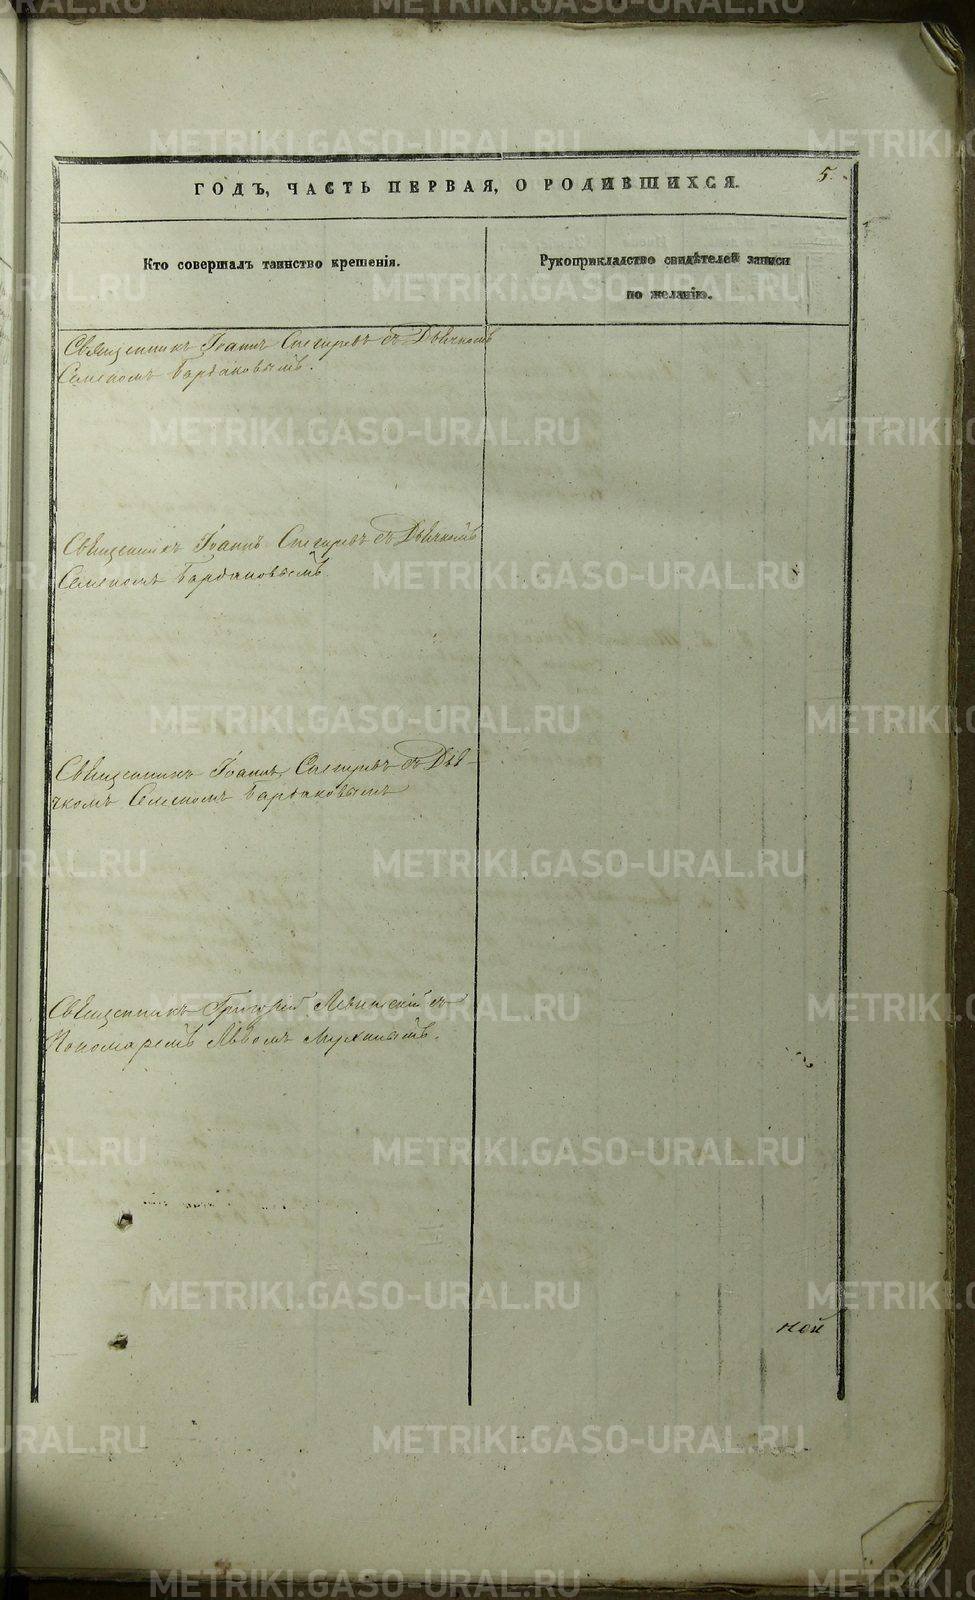 5.
ГОДЪ, ЧАСТЬ ПЕРВАЯ, О РОДИВШИХСЯ.
Кто совершалъ таинство крещенія.
Рукоприкладство свидѣтелей записи
по желанію.
Священникъ Іоаннъ Снегиревъ съ Дьячкомъ
Семеномъ Бардаковымъ.
Священникъ Іоаннъ Снегиревъ съ Дьячкомъ
Семеномъ Бардаковымъ.
Священникъ Іоаннъ Снегиревъ съ Дья-
чкомъ Семеномъ Бардаковымъ
Священникъ Григорій Левитскій съ
Пономаремъ Львомъ Мухинымъ.
ной
METRIKI.GASO-URAL.RU